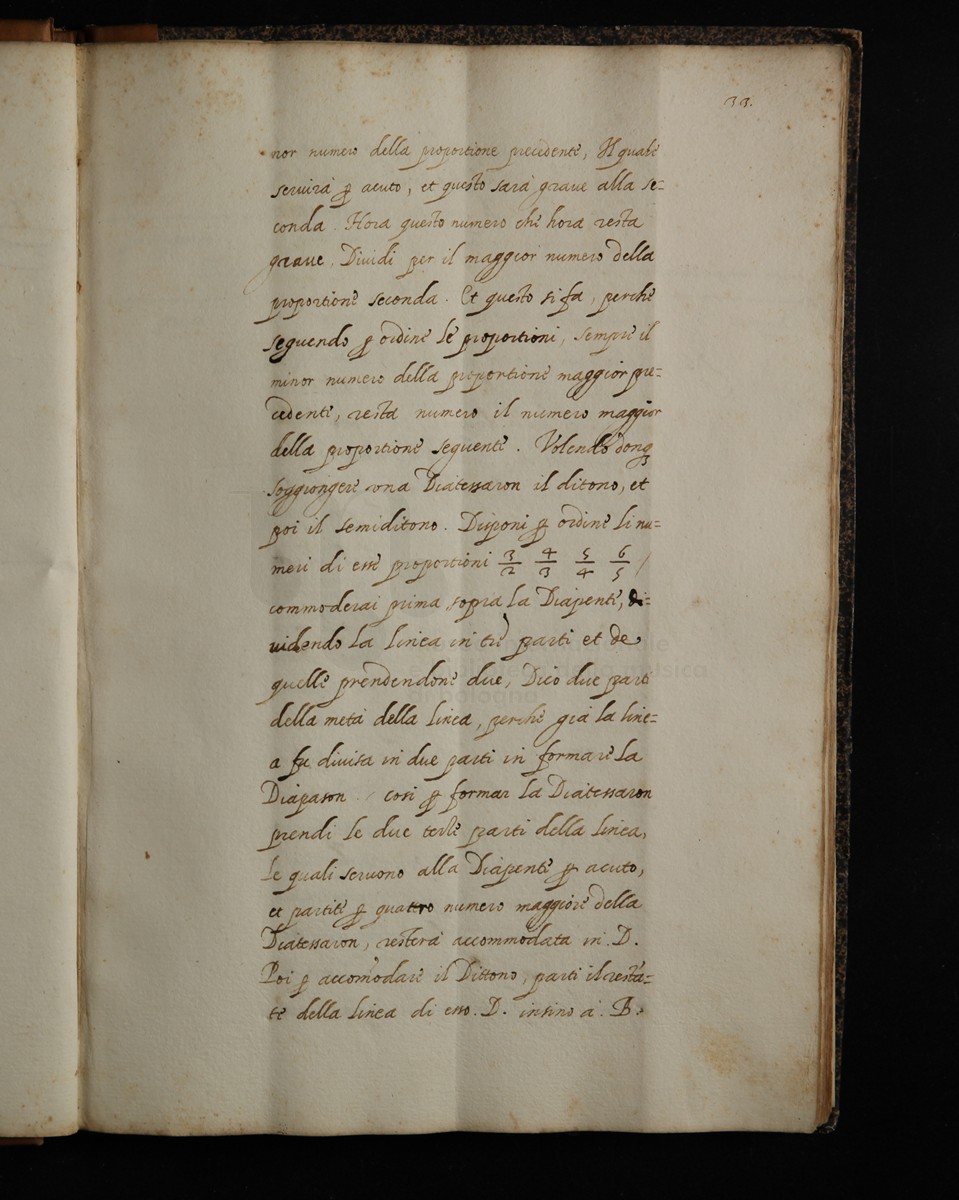 33.
nor numero della proportione precedente, Il quale
seruirà p acuto, et questo sarà graue alla se=
conda. Hora questo numero che hora resta
graue, Diuidi per il maggior numero della
proportione seconda. Et questo si fa, perche
seguendo p ordine le proportioni, sempre il
minor numero della proportione maggior pre=
cedente, resta numero il numero maggior
della proportione seguente. Volendo donq
soggiongere una Diatessaron il ditono, et
poi il semiditono. Disponi p ordine li nu=
meri di esse proportioni 3/2 4/3 5/4 6/5 /
commoderai prima sopra la Diapente, di=
uidendo la linea in tre parti et de
quelle prendendone due, Dico due parti
della metà della linea, perche già la line=
a fu diuisa in due parti in formare la
Diapason. cosi p formar la Diatessaron
prendi le due terze parti della linea,
le quali seruono alla Diapente p acuto,
et partite p quattro numero maggiore della
Diatessaron, resterà accommodata in .D.
Poi p accomodare il Dittono, parti il resta=
te della linea di esso .D. insino à .B.